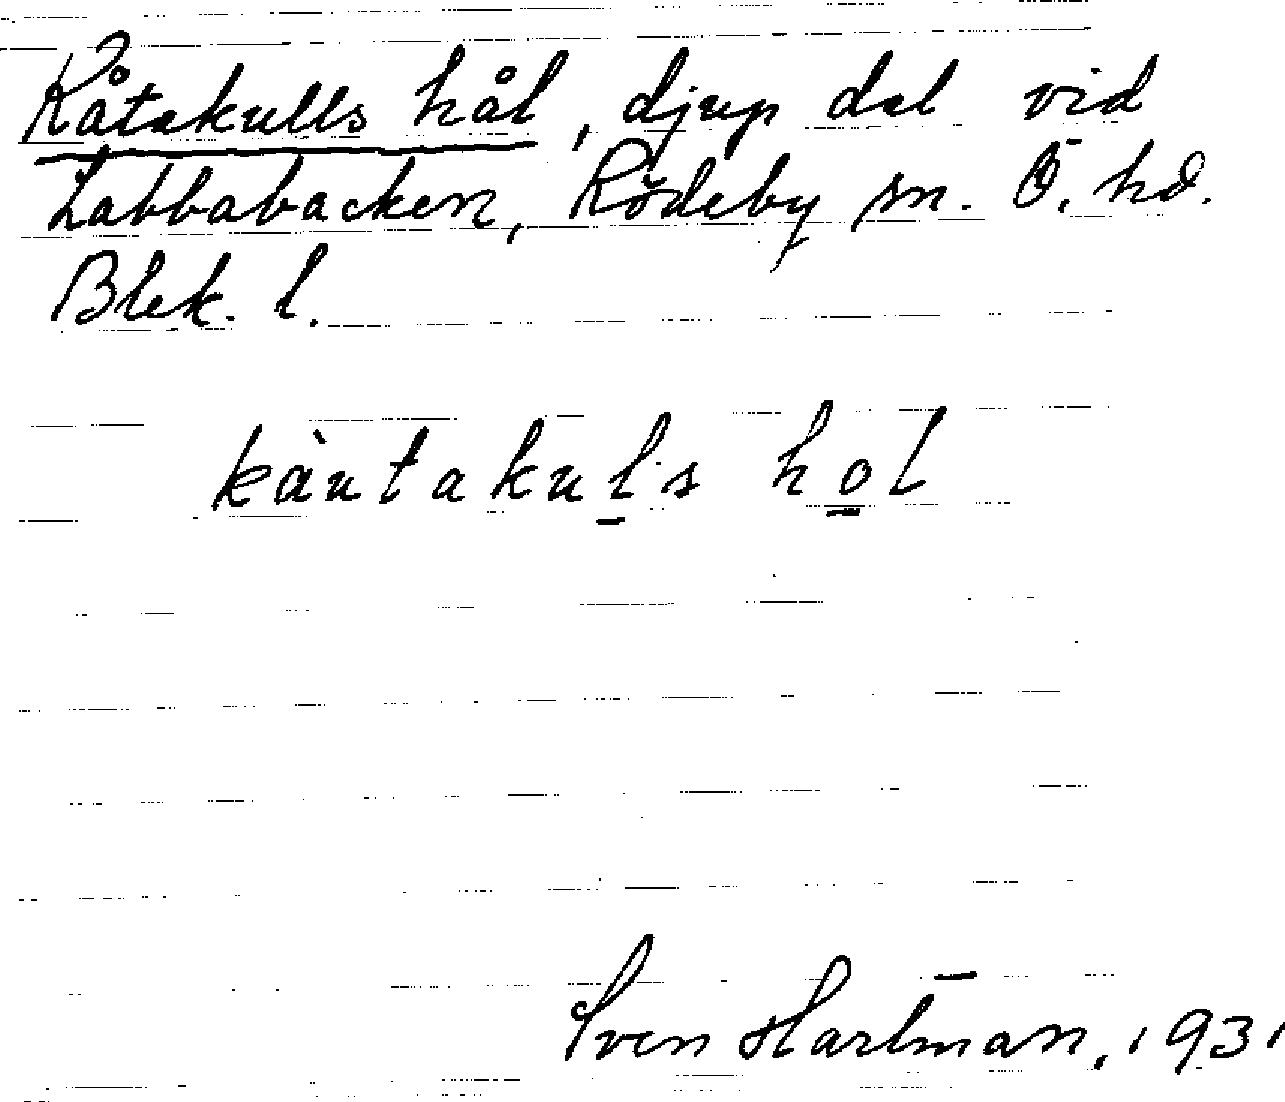 Kåtakulls hål, djup dal vid
Labbabacken, Rödeby sn. Ö. hd.
Blek. l.
kàutakuls hol
Sven Hartman, 1931